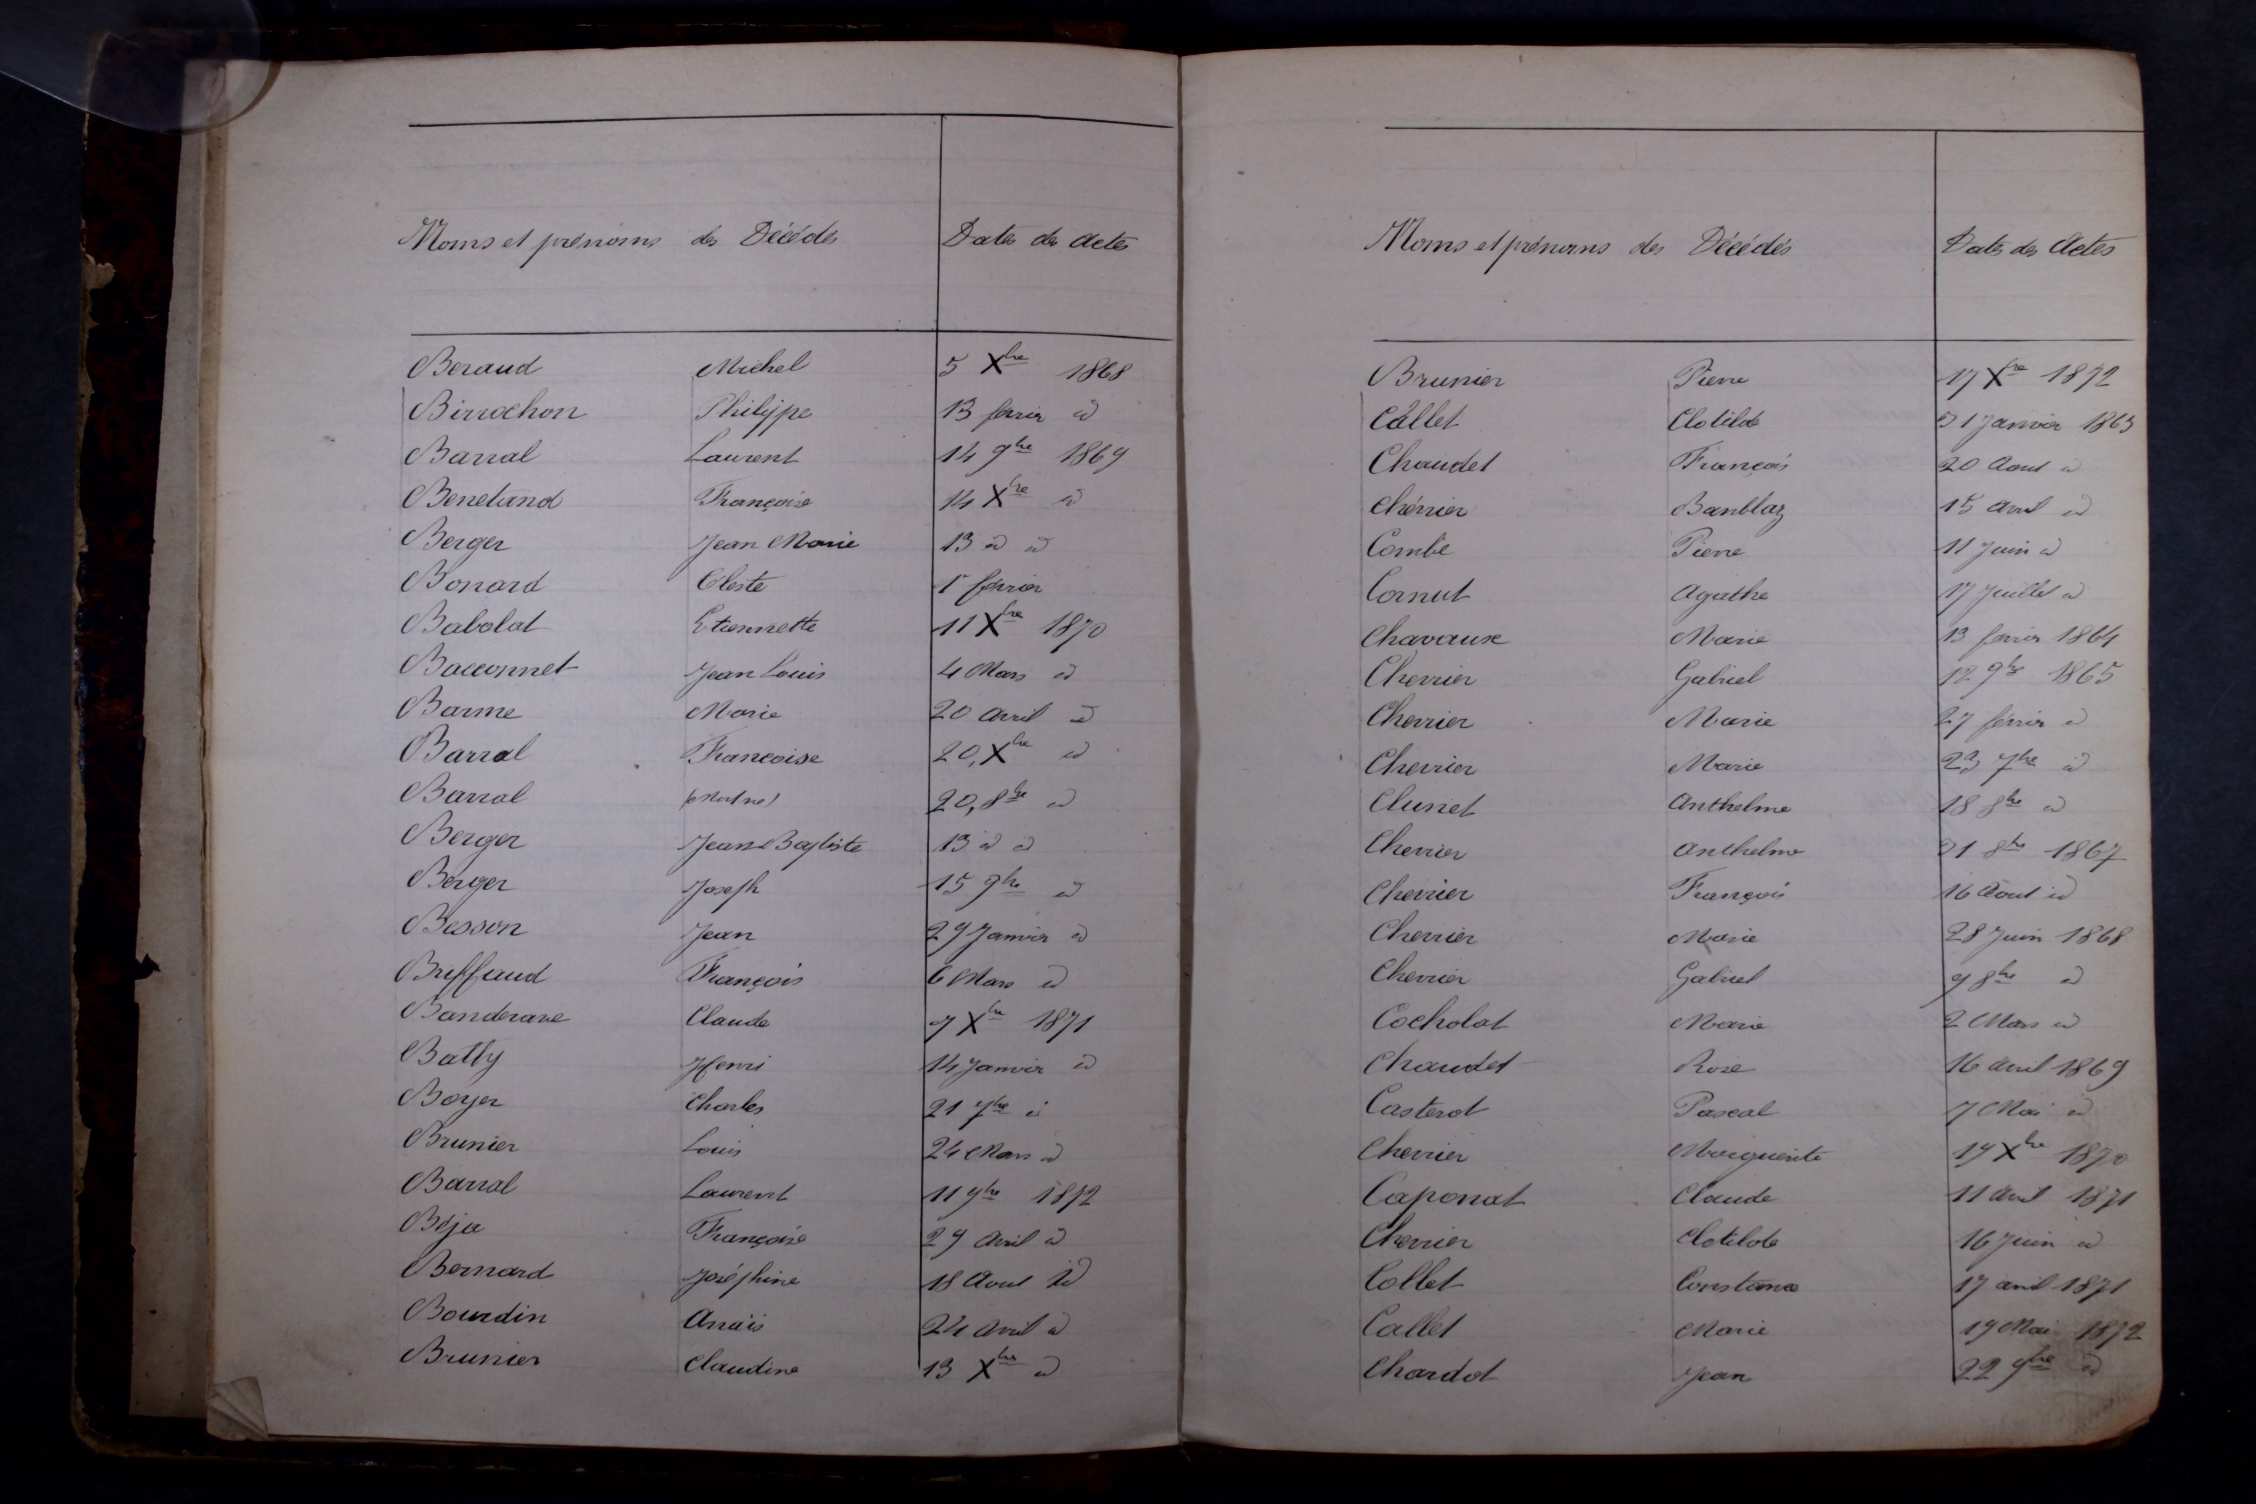 Noms et prénoms des Décédés Dates des Actes
Beraud Michel 5 Xbre 1868
Birrochon Philippe 13 févrir id
Barral Laurent 14 9bre 1869
Benetand Françoise 14 Xbre id
Berger Jean Marie 13 id id
Bonard Celeste 1r févrir
Babolat Etiennette 11 Xbre 1870
Bacconnet Jean Louis 4 Mars id
Barme Marie 20 Avril id
Barral Francoise 20, Xbre id
Barral (Mort né) 20, 8bre id
Berger Jean Baptiste 13 id id
Berger Joseph 15 9bre id
Besson Jean 29 Janvir id
Briffaud François 6 Mars id
Banderare Claude 7 Xbre 1871
Batty Henri 14 Janvir id
Boyer Charles 21 7bre id
Brunier Louis 24 Mars id
Barral Laurent 11 9bre 1872
Béja Françoise 29 Avril id
Bernard Joséphine 18 Aout id
Bourdin Anaïs 24 Avril id
Brunier Claudine 13 Xbre id
Noms et prénoms des Décédés Dates des Actes
Brunier Pierre 17 Xbre 1872
Callet Clotilde 31 Janvier 1863
Chaudet François 20 Aout id
Chérrier 15 Avril id
Combe Pierre 11 Juin id
Cornut Agathe 17 Juillet id
Chavaux Marie 13 févrir 1864
Cherrier Gabriel 12 9bre 1865
Cherrier Marie 27 févrir id
Cherrier Marie 23 7bre id
Clunet Anthelme 18 8bre id
Cherrier Anthelme 21 8bre 1867
Cherrier François 16 Aout id
Cherrier Marie 28 Juin 1868
Cherrier Gabriel 9 8bre id
Cocholat Marie 2 Mars id
Chaudet Rose 16 Avril 1869
Casterot Pascal 7 Mai id
Cherrier Marguerite 19 Xbre 1870
Caponat Claude 11 Avril 1871
Cherrier Clotilde 16 Juin id
Collet Constance 17 avril 1871
Callet Marie 19 Mai 1872
Chardot Jean 22 9bre id